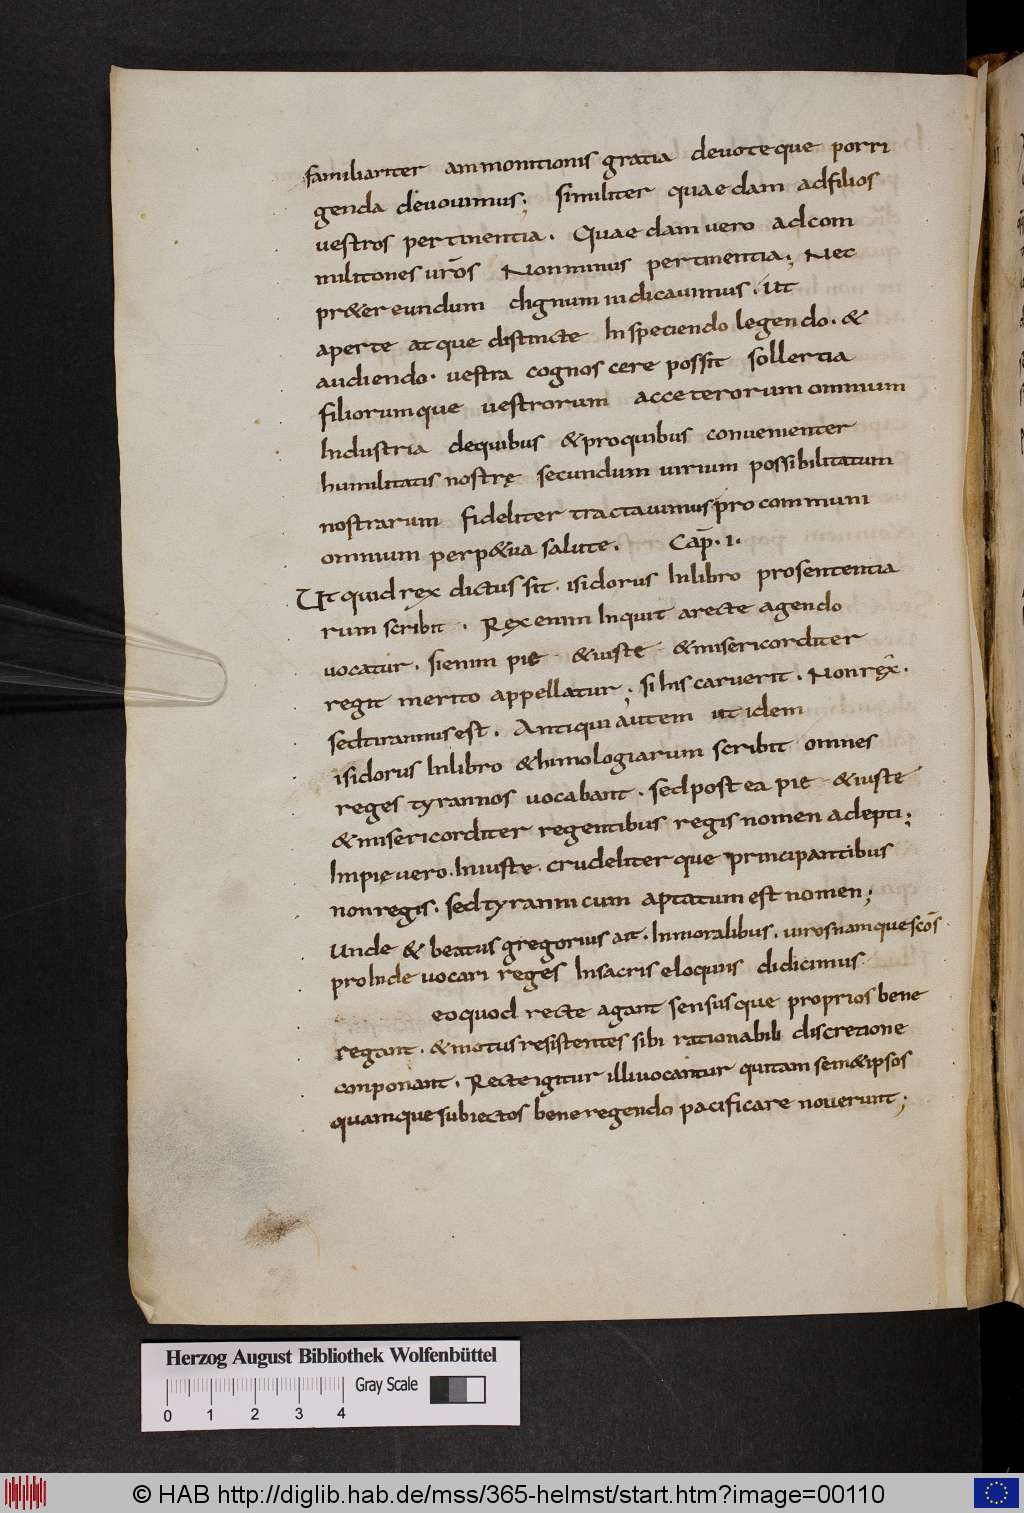 familiariter ammonitionis gratia devoteque porri
genda devovimus; similiter quaedam adfilios
vestros pertinentia. Quaedam vero adcom
militones vr̄os Nonminus pertinentia; Nec
pr&ereundum dignum iudicavimus. Ut
aperte atque distincte Inspeciendo legendo. &
audiendo. vestra cognoscere possit sollertia
filiorumque vestrorum acceterorum omnium
Industria dequibus &proquibus convenienter
humilitatis nostrę secundum virium possibilitatum
nostrarum fideliter tractavimus pro communi
omnium perp&ua salute. Cap̄. 1.
Ut quid rex dictus sit. isidorus Inlibro prosententia
rum scribit. Rex enim Inquit arecte agendo
vocatur. sienim pie &iuste &misericorditer
regit merito appellatur; si his caruerit. Non rex.
sedtirannus est. Antiqui autem ut idem
isidorus Inlibro &himologiarum scribit omnes
reges tyrannos vocabant. sed post ea pie &iuste
&misericorditer regentibus regis nomen adepti;
Impię vero. Iniuste. crudeliterque principantibus
non regis. sed tyrannicum aptatum est nomen;
Unde & beatus gregorius ait. Inmoralibus. viros namque scōs
proInde vocari reges Insacris eloquiis didicimus.
eo quod recte agant sensusque proprios bene
regant. &motus resistentes sibi rationabili discretione
conponant. Recte igitur illi vocantur qui tam sem&ipsos
quamque subiectos bene regendo pacificare noverunt;
Herzog August Bibliothek Wolfenbüttel
Gray Scale
0 1 2 3 4
© HAB http://diglib.hab.de/mss/365-helmst/start.htm?image=00110